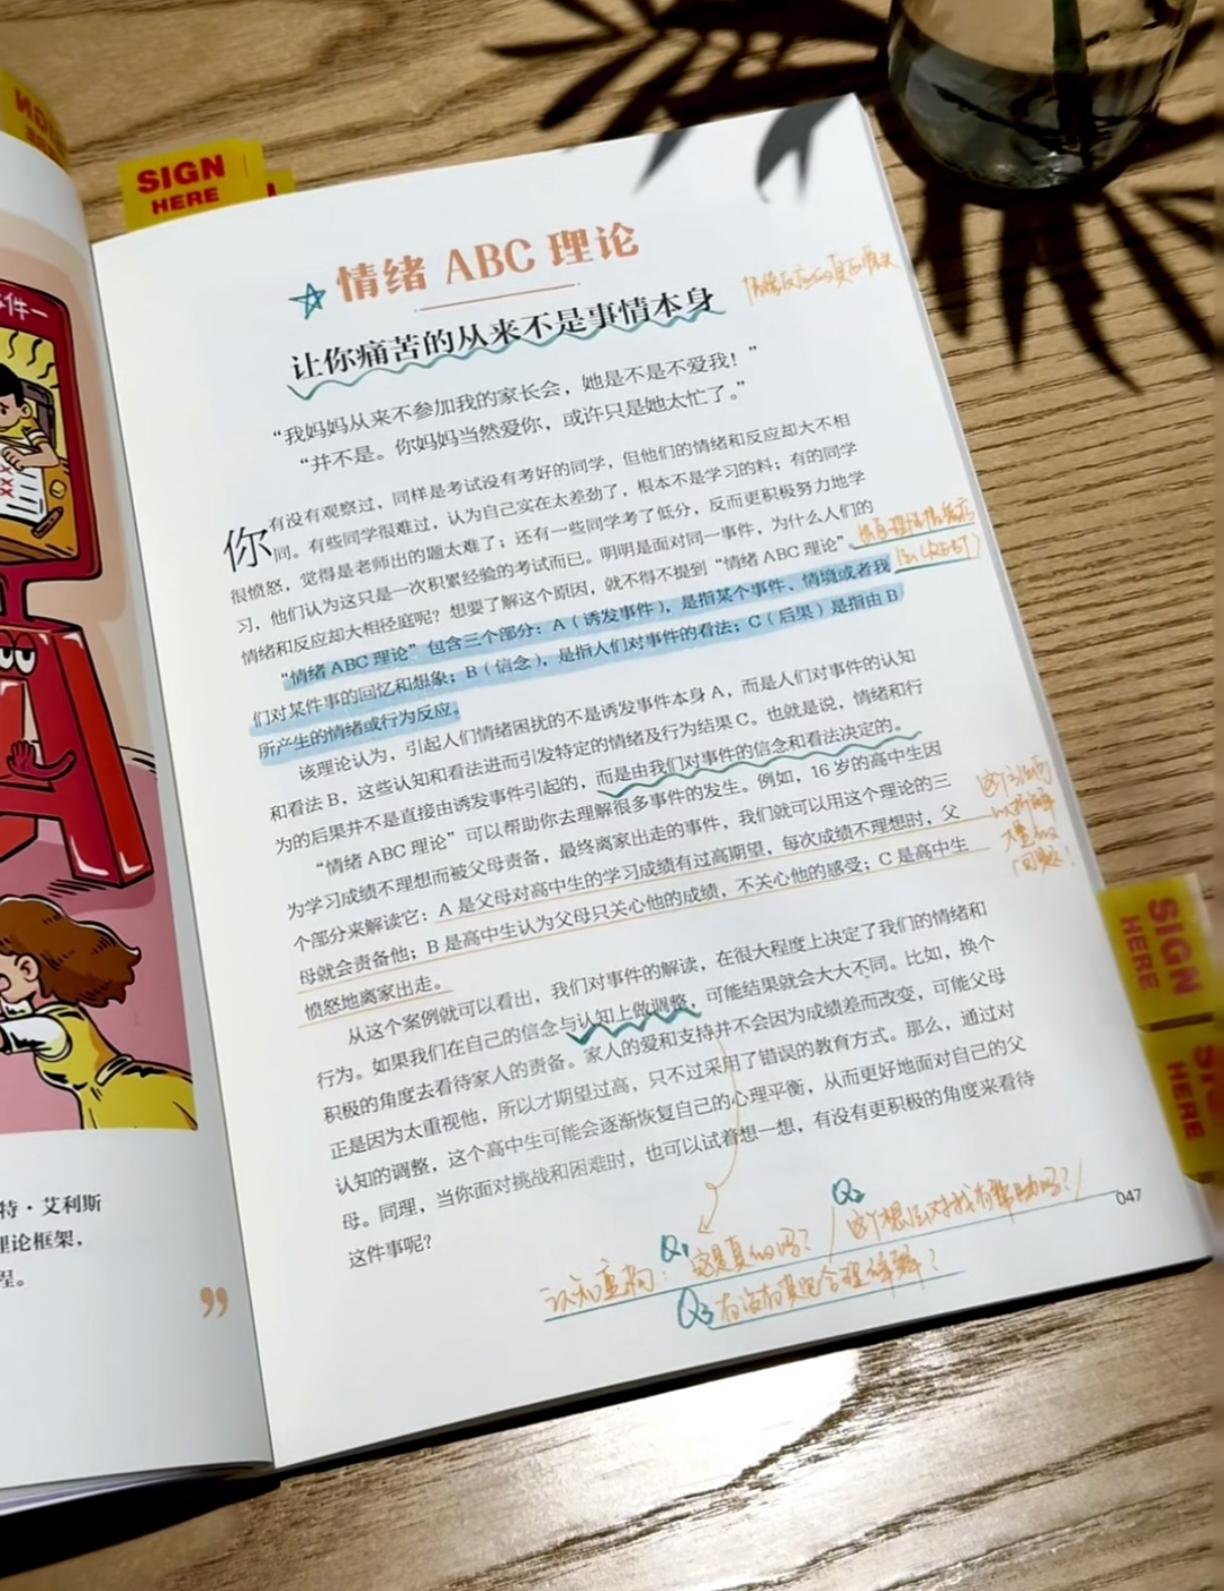 SIGN
HERE
件一
特·艾利斯
理论框架，
程。
”
情绪 ABC 理论
让你痛苦的从来不是事情本身
“我妈妈从来不参加我的家长会，她是不是不爱我！”
“并不是。你妈妈当然爱你，或许只是她太忙了。”
你有没有观察过，同样是考试没有考好的同学，但他们的情绪和反应却大不相
同。有些同学很难过，认为自己实在太差劲了，根本不是学习的料；有的同学
很愤怒，觉得是老师出的题太难了；还有一些同学考了低分，反而更积极努力地学
习，他们认为这只是一次积累经验的考试而已。明明是面对同一事件，为什么人们的
情绪和反应却大相径庭呢？想要了解这个原因，就不得不提到“情绪 ABC 理论”。
“情绪 ABC 理论”包含三个部分：A（诱发事件），是指某个事件、情境或者我
们对某件事的回忆和想象；B（信念），是指人们对事件的看法；C（后果）是指由 B
所产生的情绪或行为反应。
该理论认为，引起人们情绪困扰的不是诱发事件本身 A，而是人们对事件的认知
和看法 B，这些认知和看法进而引发特定的情绪及行为结果 C。也就是说，情绪和行
为的后果并不是直接由诱发事件引起的，而是由我们对事件的信念和看法决定的。
“情绪 ABC 理论”可以帮助你去理解很多事件的发生。例如，16 岁的高中生因
为学习成绩不理想而被父母责备，最终离家出走的事件，我们就可以用这个理论的三
个部分来解读它：A 是父母对高中生的学习成绩有过高期望，每次成绩不理想时，父
母就会责备他；B 是高中生认为父母只关心他的成绩，不关心他的感受；C 是高中生
愤怒地离家出走。
从这个案例就可以看出，我们对事件的解读，在很大程度上决定了我们的情绪和
行为。如果我们在自己的信念与认知上做调整，可能结果就会大大不同。比如，换个
积极的角度去看待家人的责备。家人的爱和支持并不会因为成绩差而改变，可能父母
正是因为太重视他，所以才期望过高，只不过采用了错误的教育方式。那么，通过对
认知的调整，这个高中生可能会逐渐恢复自己的心理平衡，从而更好地面对自己的父
母。同理，当你面对挑战和困难时，也可以试着想一想，有没有更积极的角度来看待
这件事呢？
047
认知重构：Q1 这是真的吗？/ Q2 这个想法对我有帮助吗？/
Q3 有没有其他合理解释？
SIGN
HERE
HERE